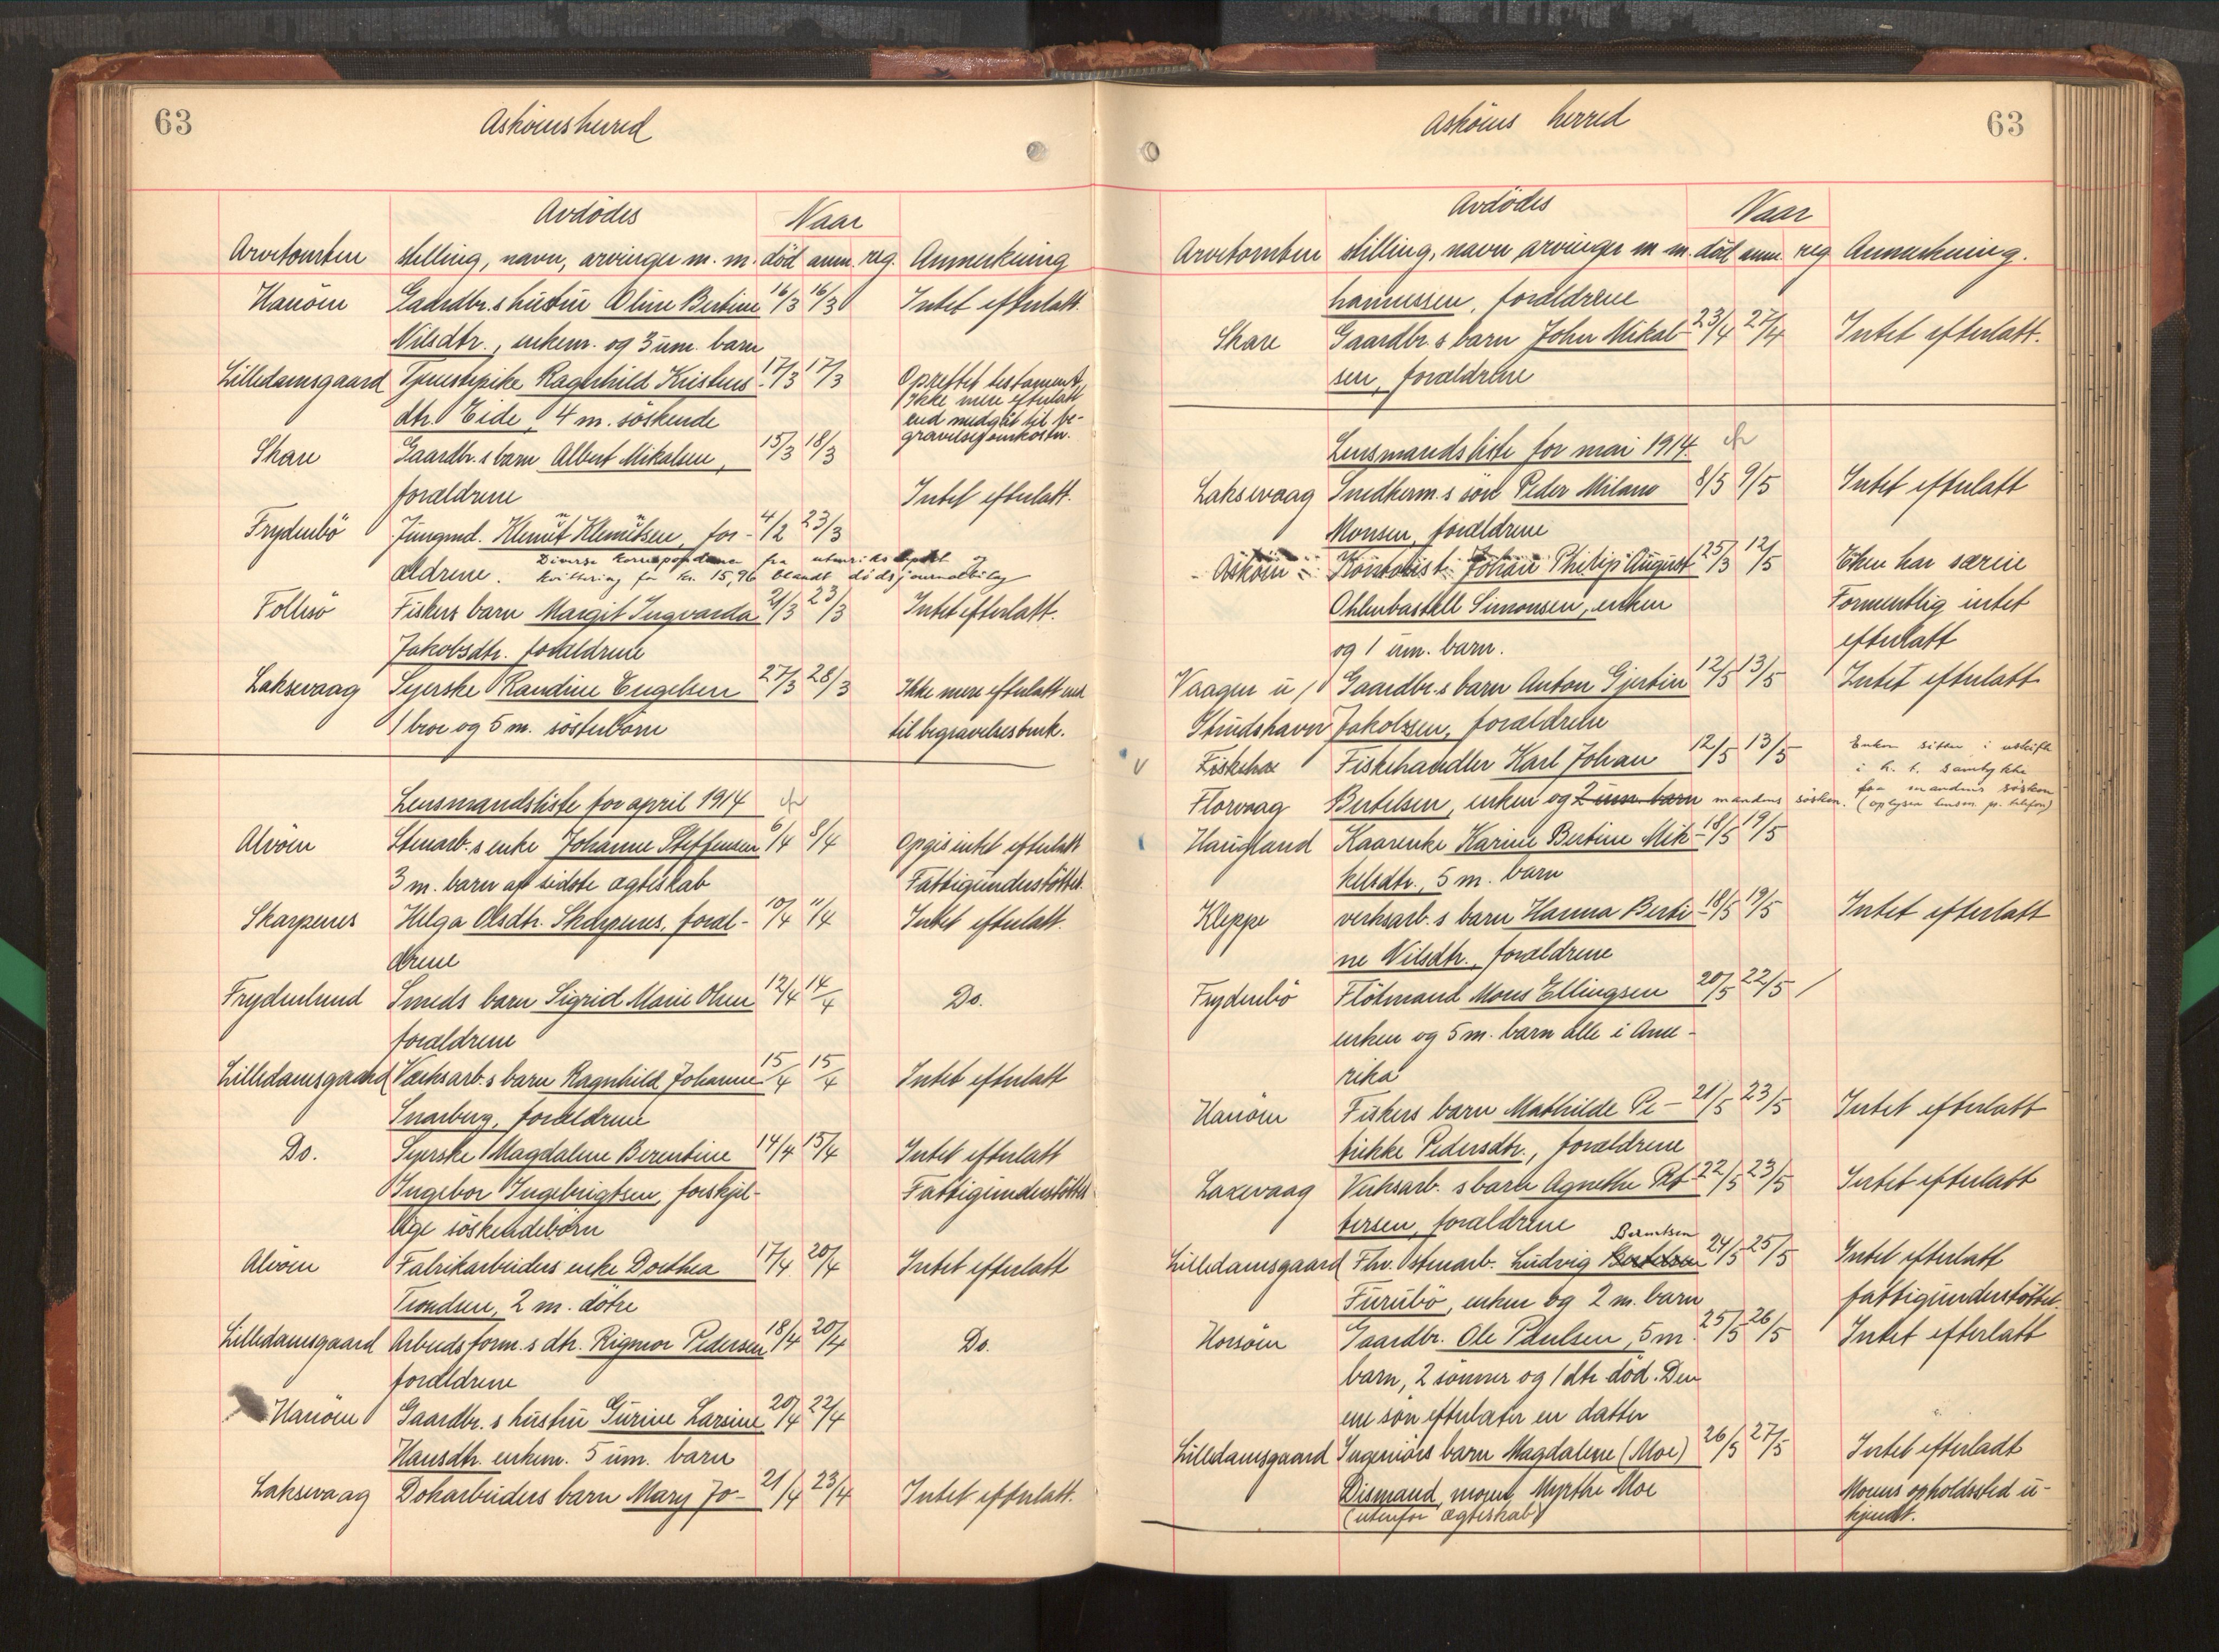 63
Asköens herred
Avdödes
Naar
Arvetomten stilling, navn, arvinger m. m. död anm. reg. Anmerkning
Hanöen Gaardbr.s hustru Oline Bertine 16/3 16/3 Intet efterlatt.
Nilsdtr., enkem. og 3 um. barn
Lilledamsgaard Tjenestepike Ragnhild Kristens- 17/3 17/3 Oprettet testament,
ikke mere efterlatt
dtr. Eide, 4 m. söskende end medgåt til be-
gravelsesomkostn.
Skare Gaardbr.s barn Albert Mikalsen, 15/3 18/3
forældrene Intet efterlatt.
Frydenbö Jungmd. Klemet Klemetsen, for- 4/2 23/3
ældrene. Diverse korrespondance fra utenriksdeptet og
kvittering for kr. 15,96 blandt dödsjournalbilag
Follesö Fiskers barn Margit Ingvarda 21/3 23/3 Intet efterlatt.
Jakobsdtr. forældrene
Laksevaag Syerske Randine Engelsen 27/3 28/3 Ikke mere efterlatt end
1 bror og 5 m. sösterbörn til begravelsesbruk.
Lensmandsliste for april 1914
Alvöen Stenarb.s enke Johanne Steffensen 6/4 8/4 Opgis intet efterlatt
3 m. barn af sidste ægteskab Fattigunderstöttet.
Skarpenes Helga Olsdtr. Skarpenes, foræl- 10/4 11/4 Intet efterlatt.
drene
Frydenlund Smeds barn Sigrid Marie Olsen 12/4 14/4 Do.
forældrene
Lilledamsgaard Verksarb.s barn Ragnhild Johanne 15/4 15/4 Intet efterlatt
Snarberg, forældrene
Do. Syerske Magdalene Berentine 14/4 15/4 Intet efterlatt
Ingebor Ingebrigtsen, forskjel- Fattigunderstöttet
lige söskendebörn
Alvöen Fabrikarbeiders enke Dorthea 17/4 20/4 Intet efterlatt
Trondsen, 2 m. dötre
Lilledamsgaard Arbeidsform.s dtr. Rigmor Pedersen 18/4 20/4 Do.
forældrene
Hanöen Gaardbr.s hustru Gurine Larsine 20/4 22/4
Hansdtr. enkem. 5 um. barn
Laksevaag Dokarbeiders barn Mary Jo- 21/4 23/4 Intet efterlatt.
63
Asköens herred
Avdödes
Naar
Arvetomten stilling, navn arvinger m m. död anm. reg Anmerkning.
hannessen, forældrene
Skare Gaardbr.s barn John Mikal- 23/4 27/4 Intet efterlatt.
sen, forældrene
Lensmandsliste for mai 1914
Laksevaag Snedkerm.s sön Peder Milano 8/5 9/5 Intet efterlatt
Monsen, forældrene
Asköen Kontorist Johan Philip August 25/3 12/5 Enken har særeie
Ohlenbastell Simonsen, enken Formentlig intet
og 1 um. barn. efterlatt
Vaagen u/ Gaardbr.s barn Anton Gjertin 12/5 13/5 Intet efterlatt
Strudshavn Jakobsen, forældrene
Fiskeha Fiskehandler Karl Johan 12/5 13/5 Enken sitter i uskifte
i h. t. samtykke
Florvaag Bertelsen, enken og 2 um. barn mandens söskn. fra mandens söskn
(oplysn lensm. pr. telefon)
Haugland Kaarenke Karine Bertine Mik- 18/5 19/5
kelsdtr., 5 m. barn
Kleppe verksarb.s barn Hanna Berti- 18/5 19/5 Intet efterlatt
ne Nilsdtr., forældrene
Frydenbö Flötmand Mons Ellingsen 20/5 22/5 /
enken og 5 m. barn alle i Ame-
rika
Hanöen Fiskers barn Mathilde Pe- 21/5 23/5 Intet efterlatt
trikke Pedersdtr., forældrene
Laxevaag Verksarb.s barn Agnethe Pet- 22/5 23/5 Intet efterlatt
tersen, forældrene
Berntsen
Lilledamsgaard Fhv. stenarb. Ludvig Bertelsen 24/5 25/5 Intet efterlatt
Furubö, enken og 2 m. barn fattigunderstöttet.
Horsöen Gaardbr. Ole Paulsen, 5 m. 25/5 26/5 Intet efterlatt
barn, 2 sönner og 1 dtr död. Den
ene sön efterlater en datter
Lilledamsgaard Ingeniörs barn Magdalene (Moe) 26/5 27/5 Intet efterladt
Dismand, moren Myrthe Moe Morens opholdssted u-
(utenfor ægteskab) kjendt.